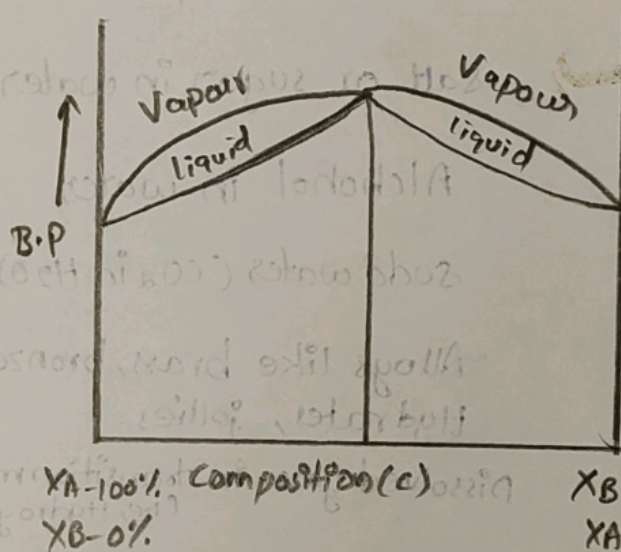 Vapour
Vapour
liquid
liquid
B.P
XA-100% Composition(c) XB
XB-0% XA